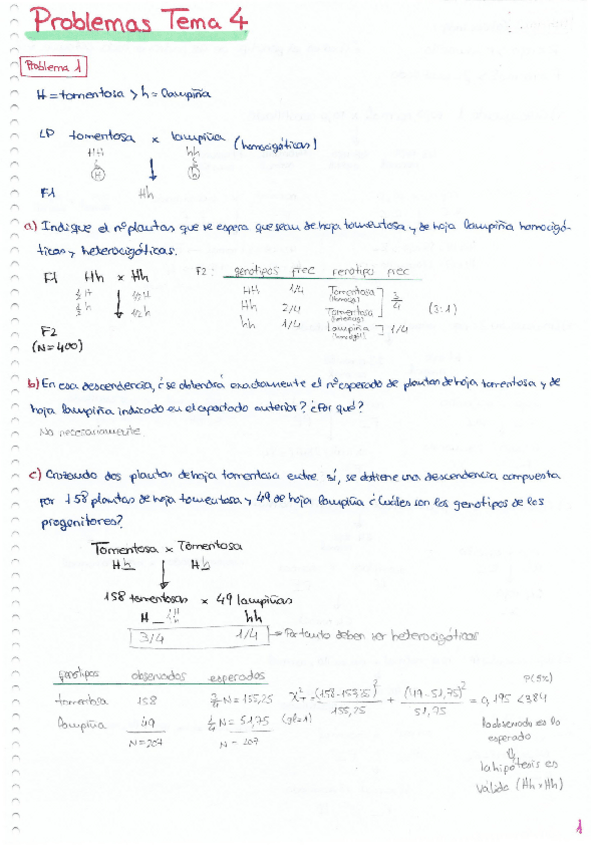 Problemas Tema 4
Problema 1
H = tomentosa > h = lampiña
LP tomentosa x lampiña (homocigóticas)
HH hh
H h
F1 Hh
a) Indique el nº plantas que se espera que sean de hoja tomentosa y de hoja lampiña homocigó-
ticas y heterocigóticas.
F1 Hh x Hh
½ H ½ H
½ h ½ h
F2
(N=400)
F2: genotipos frec fenotipo frec
HH 1/4 Tomentosa (homocig) 3/4
Hh 2/4 Tomentosa (3:1)
hh 1/4 lampiña 1/4
b) En esa descendencia, ¿se obtendrá exactamente el nº esperado de plantas de hoja tomentosa y de
hoja lampiña indicado en el apartado anterior? ¿Por qué?
No necesariamente
c) Cruzando dos plantas de hoja tomentosa entre sí, se obtiene una descendencia compuesta
por 158 plantas de hoja tomentosa y 49 de hoja lampiña ¿Cuáles son los genotipos de los
progenitores?
Tomentosa x Tomentosa
Hh Hh
158 tomentosas x 49 lampiñas
H_ hh
3/4 1/4 → Por tanto deben ser heterocigóticas
genotipos observados esperados
tomentosa 158 ¾ N = 155,25
lampiña 49 ¼ N = 51,75
N=207 N=207
X² = (158-155,25)² / 155,25 + (49-51,75)² / 51,75 = 0,195 < 3,84
(gl=1)
P(5%)
lo observado es lo
esperado
⇓
la hipótesis es
válida (Hh x Hh)
1